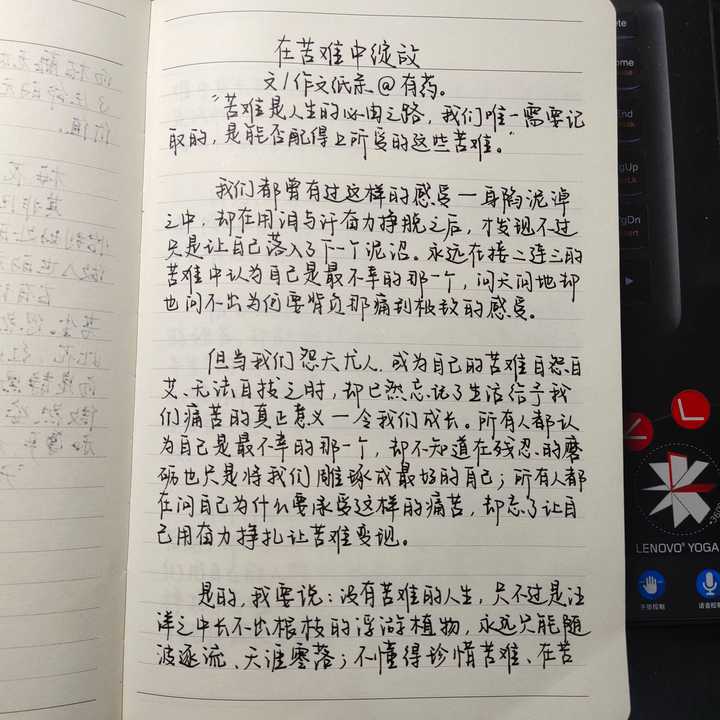 在苦难中绽放
文/作文纸条@有药。
“苦难是人生的必由之路，我们唯一需要记
取的，是能否配得上所受的这些苦难。”
我们都曾有过这样的感受一身陷泥淖
之中，却在用泪与汗奋力挣脱之后，才发现不过
只是让自己落入了下一个泥沼。永远在接二连三的
苦难中认为自己是最不幸的那一个，问天问地却
也问不出为何要背负那痛到极致的感受。
但当我们怨天尤人，成为自己的苦难自怨自
艾、无法自拔之时，却已然忘记了生活给予我
们痛苦的真正意义一令我们成长。所有人都认
为自己是最不幸的那一个，却不知道在残忍的磨
砺也只是将我们雕琢成最好的自己；所有人都
在问自己为什么要承受这样的痛苦，却忘了让自
己用奋力挣扎让苦难变现。
是的，我要说：没有苦难的人生，只不过是汪
洋之中长不出根枝的浮游植物，永远只能随
波逐流、天涯零落；不懂得珍惜苦难、在苦
ome
End
gUp
gDn
LENOVO® YOGA
手势控制
语音控制